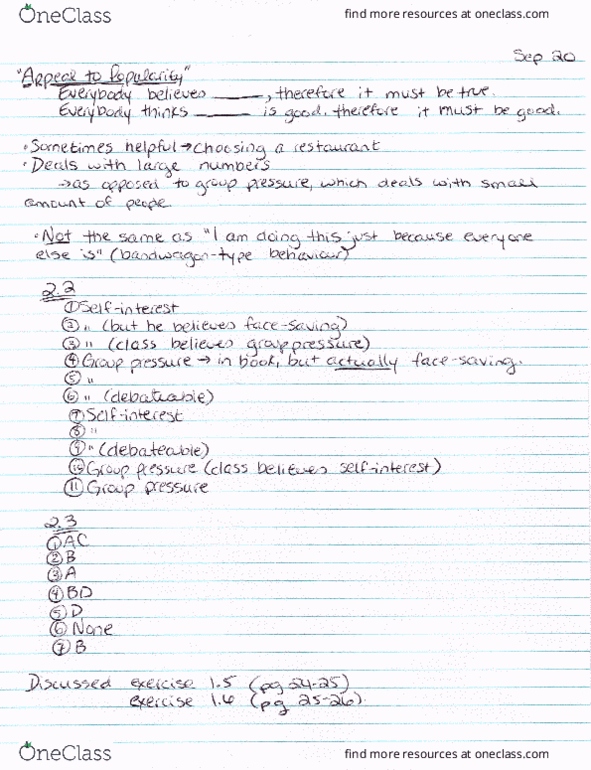 OneClass
find more resources at oneclass.com
Sep 20
"Appeal to Popularity"
Everybody believes ______, therefore it must be true.
Everybody thinks ______ is good, therefore it must be good.
• Sometimes helpful → choosing a restaurant
• Deals with large numbers
→ as opposed to group pressure, which deals with small
amount of people
• Not the same as "I am doing this just because everyone
else is" (bandwagon-type behaviour)
2.2
① Self-interest
② " (but he believes face-saving)
③ " (class believes group pressure)
④ Group pressure → in book, but actually face-saving.
⑤ "
⑥ " (debateable)
⑦ Self-interest
⑧ "
⑨ " (debateable)
⑩ Group pressure (class believes self-interest)
⑪ Group pressure
2.3
① AC
② B
③ A
④ BD
⑤ D
⑥ None
⑦ B
Discussed exercise 1.5 (pg 24-25)
exercise 1.6 (pg 25-26)
OneClass
find more resources at oneclass.com